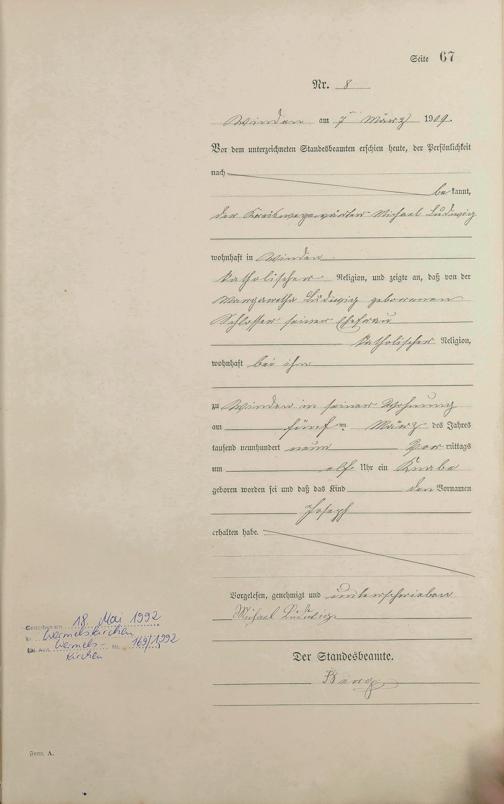 Seite 67
Nr. 8
Winden am 7ten März 1909.
Vor dem unterzeichneten Standesbeamten erschien heute, der Persönlichkeit
nach
bekannt,
der Kreiswegewärter Michael Ludwig
wohnhaft in Winden
katholischer Religion, und zeigte an, daß von der
Margaretha Ludwig geborenen
Schlosser seiner Ehefrau
katholischer Religion,
wohnhaft bei ihm
zu Winden in seiner Wohnung
am fünften März des Jahres
tausend neunhundert neun Vormittags
um elf Uhr ein Knabe
geboren worden sei und daß das Kind den Vornamen
Joseph
erhalten habe.
Vorgelesen, genehmigt und unterschrieben
Michael Ludwig
Der Standesbeamte.
Gestorben am 18. Mai 1992
in Wermelskirchen
Wermels- Nr. 169/1992
kirchen
Form. A.